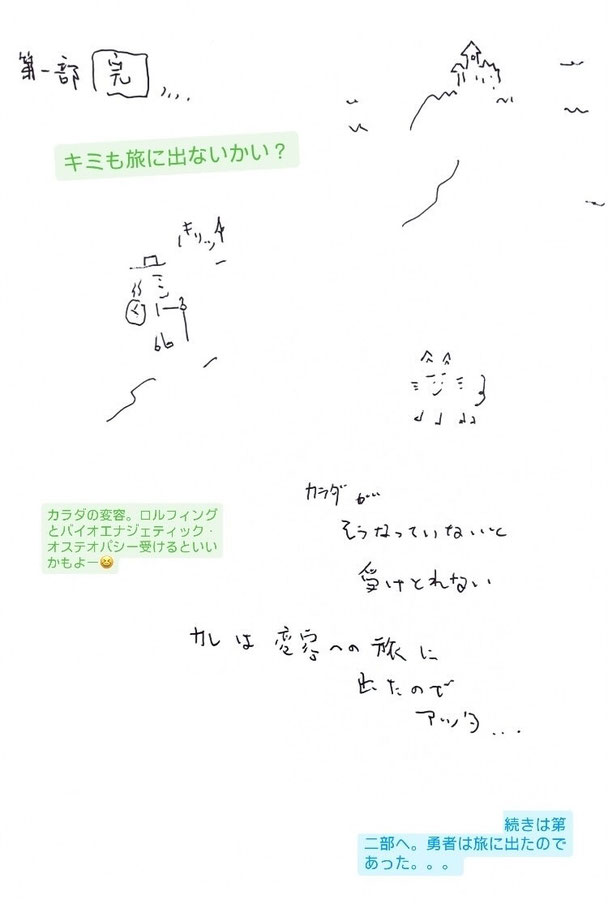 第一部 完 、、、、
キミも旅に出ないかい？
キリッ
カラダの変容。ロルフィング
とバイオエナジェティック・
オステオパシー受けるといい
かもよー😆
カラダが
そうなっていないと
受けとれない
カレは変容への旅に
出たので
アッタ...
続きは第
二部へ。勇者は旅に出たので
あった。。。